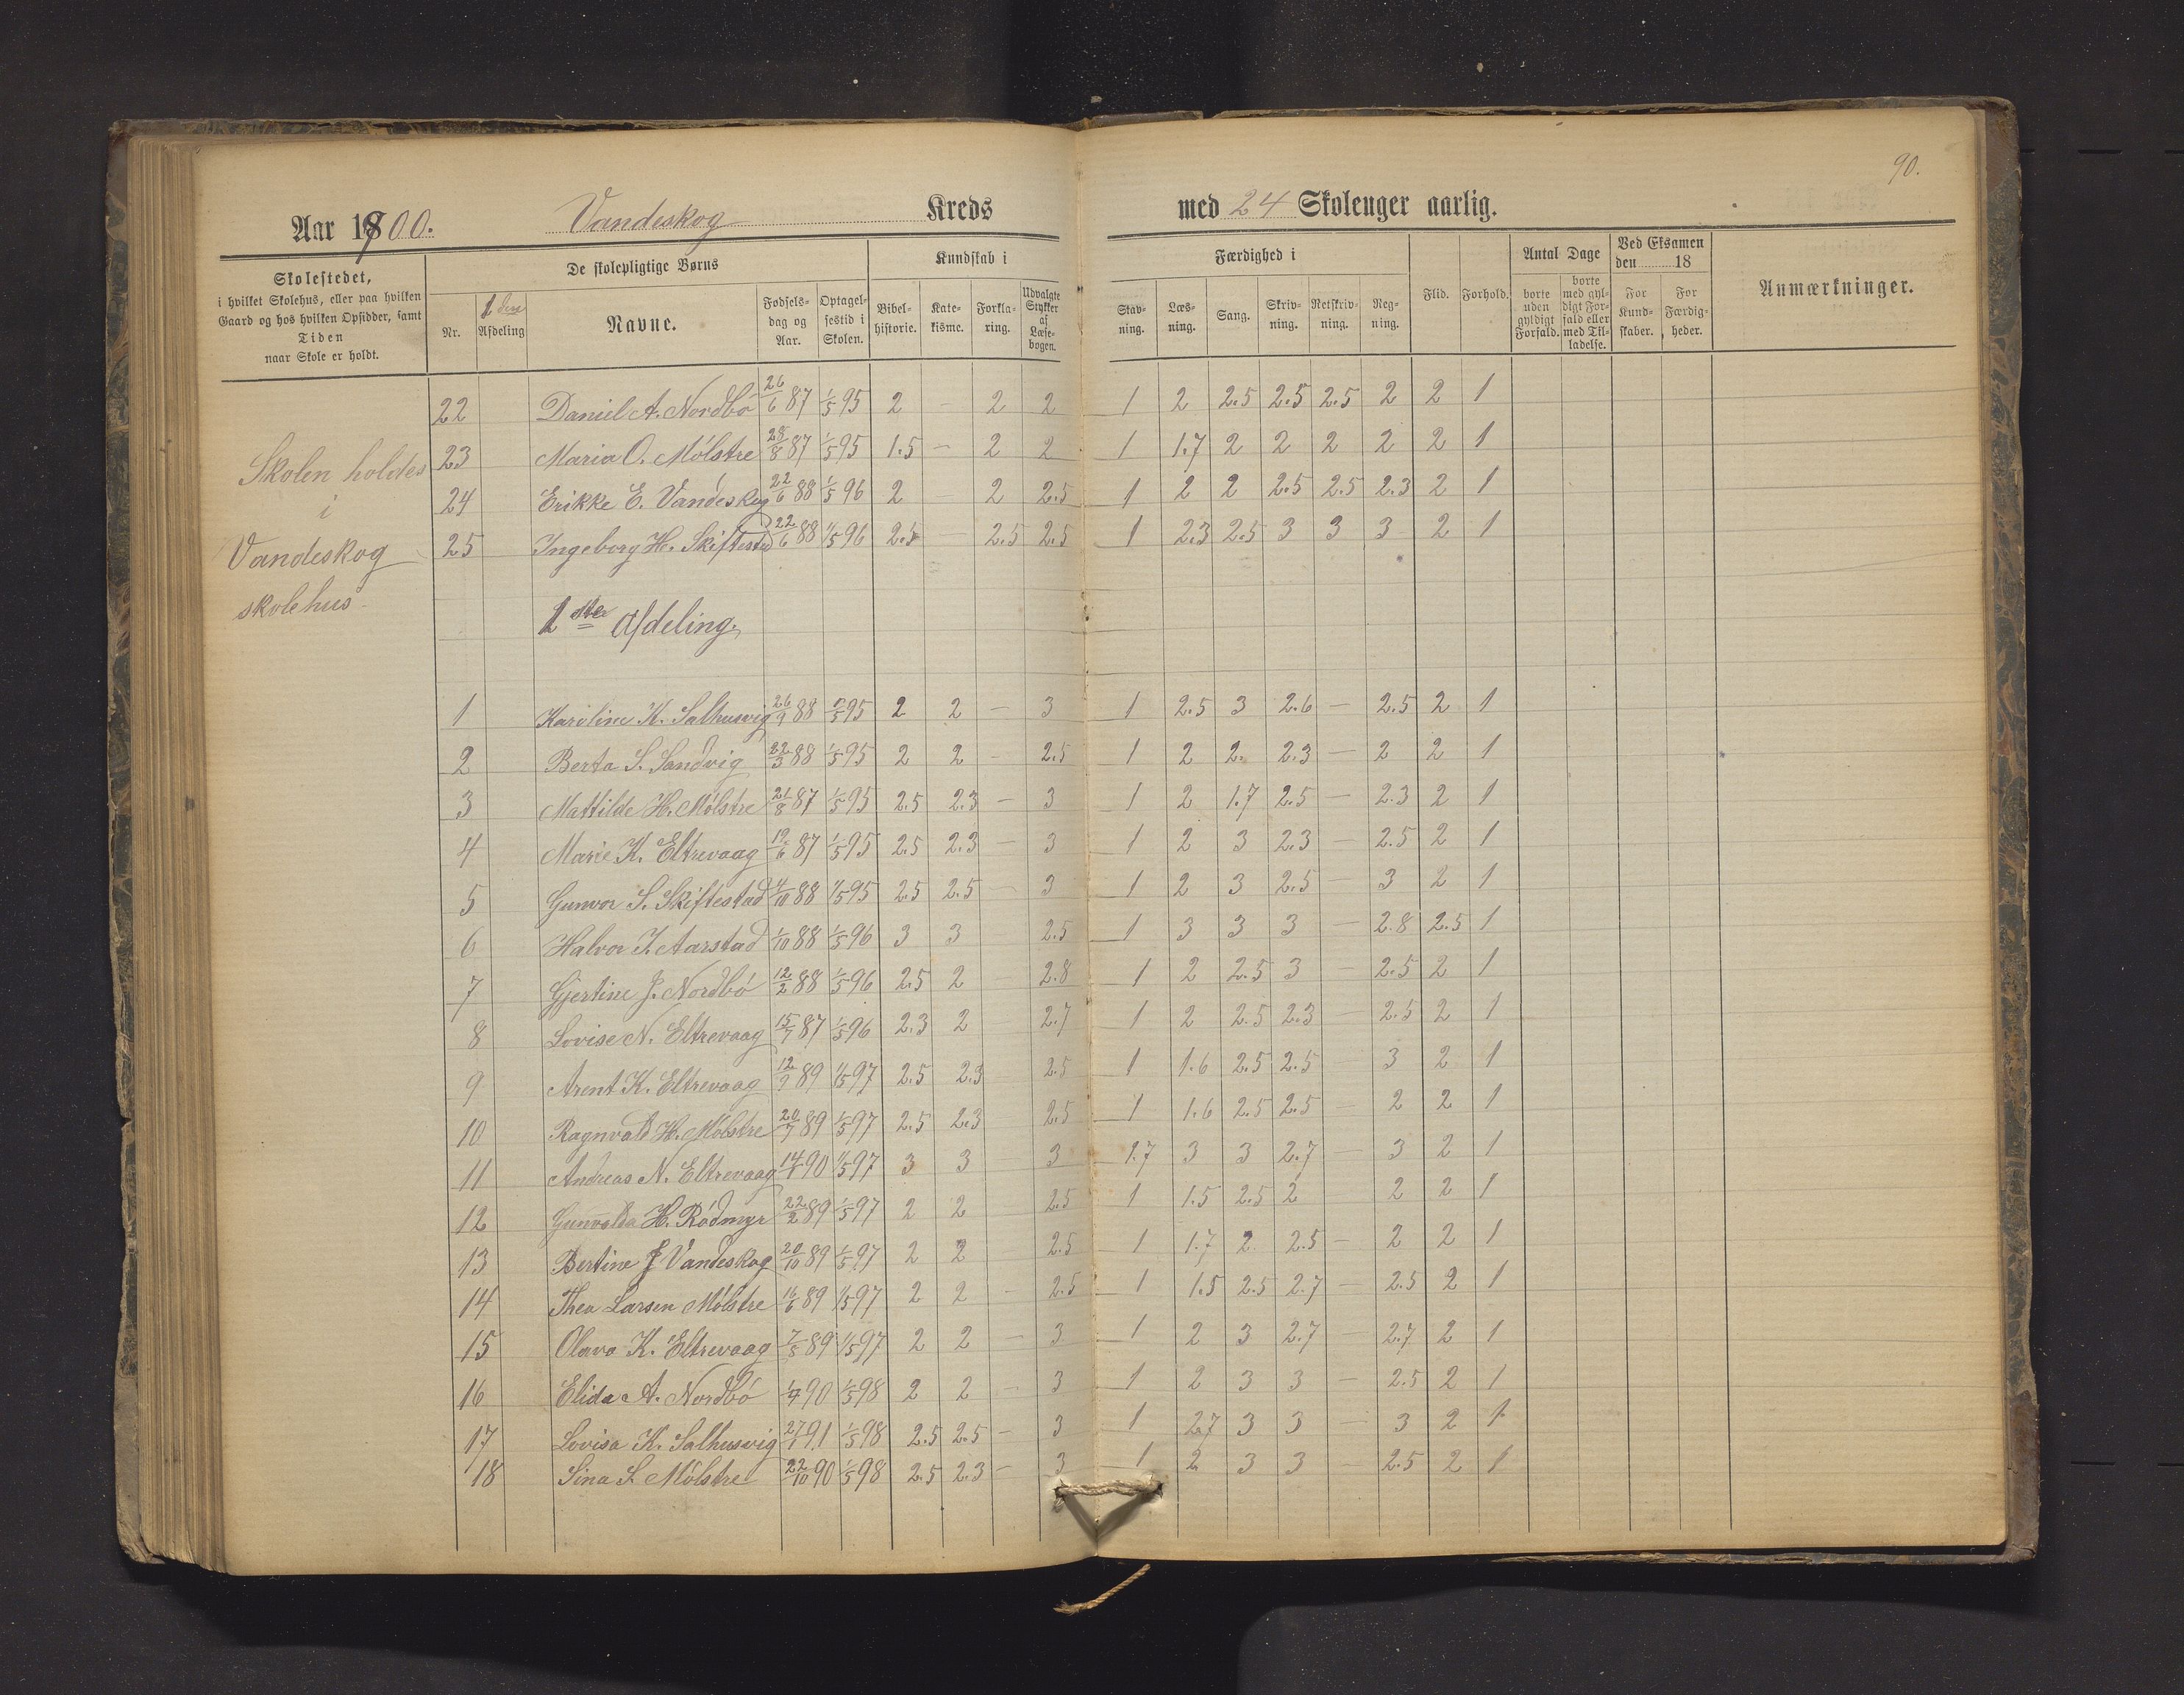 90.
Aar 1900. Vandeskog Kreds med 24 Skoleuger aarlig.
Skolestedet, i hvilket Skolehus, eller paa hvilken Gaard og hos hvilken Opsidder, samt Tiden naar Skole er holdt.
De skolepligtige Børns
Nr. Afdeling Navne. Fødsels-dag og Aar. Optagel-sestid i Skolen.
Kundskab i
Bibel-historie. Kate-kisme. Forkla-ring. Udvalgte Stykker af Læse-bogen.
Færdighed i
Stav-ning. Læs-ning. Sang. Skriv-ning. Retskriv-ning. Reg-ning. Flid. Forhold.
Antal Dage
borte uden gyldigt Forfald. borte med gyl-digt For-fald eller med Til-ladelse.
Ved Eksamen den 18
For Kund-skaber. For Færdig-heder.
Anmærkninger.
Skolen holdes
i
Vandeskog
skolehus
22 Daniel A. Nordbø 26/6 87 1/5 95 2 — 2 2 1 2 2.5 2.5 2.5 2 2 1
23 Maria O. Mølstre 28/8 87 1/5 95 1.5 — 2 2 1 1.7 2 2 2 2 2 1
24 Erikke E. Vandeskog 22/6 88 1/5 96 2 — 2 2.5 1 2 2 2.5 2.5 2.3 2 1
25 Ingeborg H. Skiftestad 22/6 88 1/5 96 2.5 — 2.5 2.5 1 2.3 2.5 3 3 3 2 1
1ste Afdeling.
1 Karoline K. Salhusvig 26/9 88 1/5 95 2 2 — 3 1 2.5 3 2.6 — 2.5 2 1
2 Berta S. Sandvig 22/3 88 1/5 95 2 2 — 2.5 1 2 2. 2.3 — 2 2 1
3 Mattilde H. Mølstre 21/8 87 1/5 95 2.5 2.3 — 3 1 2 1.7 2.5 — 2.3 2 1
4 Marie K. Eltrevaag 19/6 87 1/5 95 2.5 2.3 — 3 1 2 3 2.3 — 2.5 2 1
5 Gunvor S. Skiftestad 4/10 88 1/5 95 2.5 2.5 — 3 1 2 3 2.5 — 3 2 1
6 Halvor I. Aarstad 1/10 88 1/5 96 3 3 2.5 1 3 3 3 — 2.8 2.5 1
7 Gjertine J. Nordbø 12/2 88 1/5 96 2.5 2 — 2.8 1 2 2.5 3 — 2.5 2 1
8 Lovise N. Eltrevaag 15/7 87 1/5 96 2.3 2 2.7 1 2 2.5 2.3 — 2.5 2 1
9 Arent K. Eltrevaag 12/9 89 1/5 97 2.5 2.3 2.5 1 1.6 2.5 2.5 — 3 2 1
10 Ragnvald H. Mølstre 20/7 89 1/5 97 2.5 2.3 2.5 1 1.6 2.5 2.5 — 2 2 1
11 Andreas N. Eltrevaag 14/1 90 1/5 97 3 3 — 3 1.7 3 3 2.7 — 3 2 1
12 Gunvalda H. Rødmyr 22/2 89 1/5 97 2 2 2.5 1 1.5 2.5 2 2 2 1
13 Bertine J Vandeskog 20/10 89 1/5 97 2 2 2.5 1 1.7 2. 2.5 — 2 2 1
14 Thea Larsen Mølstre 16/6 89 1/5 97 2 2 — 2.5 1 1.5 2.5 2.7 — 2.5 2 1
15 Olava K. Eltrevaag 7/8 89 1/5 97 2 2 — 3 1 2 3 2.7 — 2.7 2 1
16 Elida A. Nordbø 90 1/5 98 2 2 — 3 1 2 3 3 — 2.5 2 1
17 Lovisa K. Salhusvig 27/1 91 1/5 98 2.5 2.5 — 3 1 2.7 3 3 — 3 2 1
18 Sina L Mølstre 22/10 90 1/5 98 2.5 2.3 — 3 1 2 3 3 — 2.5 2 1